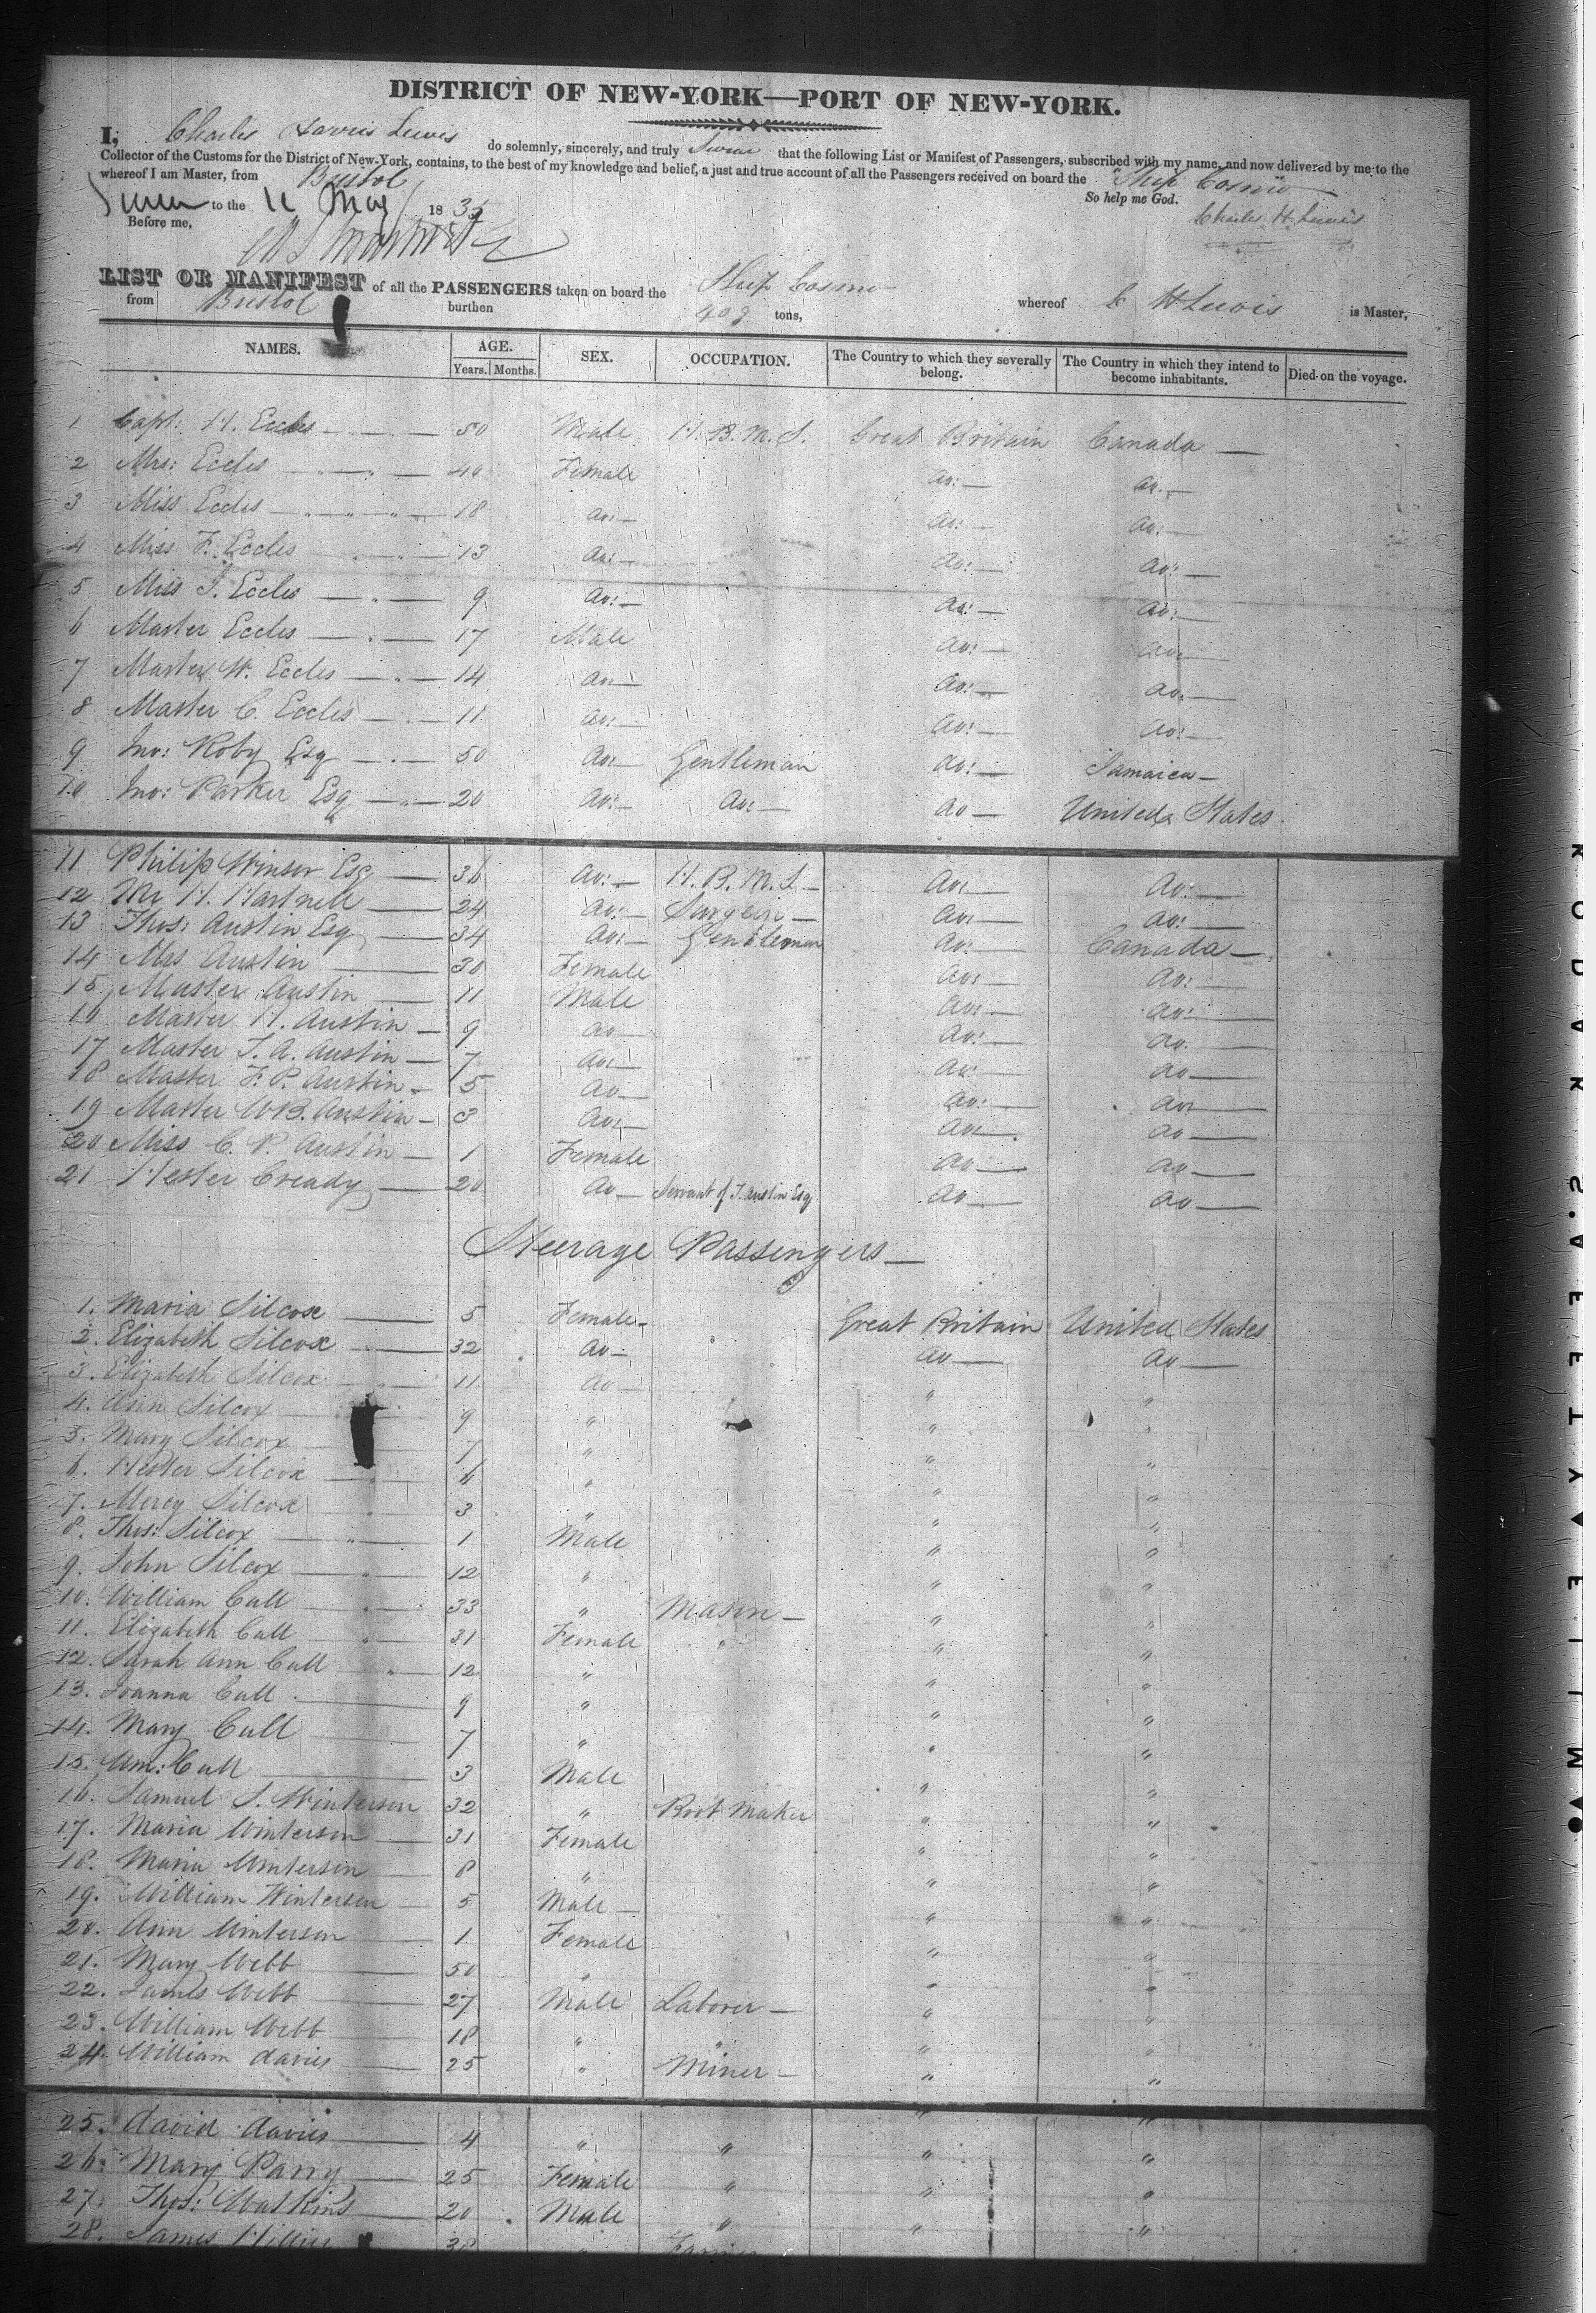 DISTRICT OF NEW-YORK—PORT OF NEW-YORK.
I, Charles Lewis do solemnly, sincerely, and truly Swear that the following List or Manifest of Passengers, subscribed with my name, and now delivered by me to the
Collector of the Customs for the District of New-York, contains, to the best of my knowledge and belief, a just and true account of all the Passengers received on board the Ship Cosmo
whereof I am Master, from Bristol
So help me God.
Sworn to the 11 May 1835 Charles H. Lewis
Before me,
LIST OR MANIFEST of all the PASSENGERS taken on board the Ship Cosmo whereof C H Lewis is Master,
from Bristol burthen 408 tons,
NAMES. AGE. SEX. OCCUPATION. The Country to which they severally belong. The Country in which they intend to become inhabitants. Died on the voyage.
Years. Months.
1 Capt: H. Eccles 50 Male H. B. M. S. Great Britain Canada
2 Mrs: Eccles 40 Female do: do:
3 Miss Eccles 18 do: do: do:
4 Miss F. Eccles 13 do: do: do:
5 Miss J. Eccles 9 do: do: do:
6 Master Eccles 17 Male do: do:
7 Master W. Eccles 14 do: do: do:
8 Master C. Eccles 11 do: do: do:
9 Jno: Roby Esq 50 do: Gentleman do: Jamaica
10 Jno: Parker Esq 20 do: do: do United States
11 Philip Winsor Esq 36 do: H. B. M. S. do: do:
12 Mr H. Hartnell 24 do: Surgeon do: do:
13 Thos: Austin Esq 34 do: Gentleman do: Canada
14 Mrs Austin 30 Female do: do:
15 Master Austin 11 Male do: do:
16 Master H. Austin 9 do do: do:
17 Master T. A. Austin 7 do: do: do
18 Master F. P. Austin 5 do do: do:
19 Master W B. Austin 3 do: do: do
20 Miss C. P. Austin 1 Female do do
21 Hester Cready 20 do Servant of T. Austin Esq do do
Steerage Passengers
1. Maria Silcox 5 Female Great Britain United States
2. Elizabeth Silcox 32 do do do
3. Elizabeth Silcox 11 do " "
4. Ann Silcox 9 " " "
5. Mary Silcox 7 " " "
6. Hester Silcox 6 " " "
7. Mercy Silcox 3 " " "
8. Thos: Silcox 1 Male " "
9. John Silcox 12 " " "
10. William Cull 33 " Mason " "
11. Elizabeth Cull 31 Female " " "
12. Sarah Ann Cull 12 " " "
13. Joanna Cull 9 " " "
14. Mary Cull 7 " " "
15. Wm: Cull 3 Male " "
16. Samuel S. Winterson 32 " Boot Maker " "
17. Maria Winterson 31 Female " "
18. Maria Winterson 8 " " "
19. William Winterson 5 Male " "
20. Ann Winterson 1 Female " "
21. Mary Webb 50 " " "
22. James Webb 27 Male Laborer " "
23. William Webb 18 " " " "
24. William Davies 25 " Miner " "
25. David Davies 4 " " " "
26. Mary Parry 25 Female " " "
27. Thos: Watkins 20 Male " " "
28. James 38 "